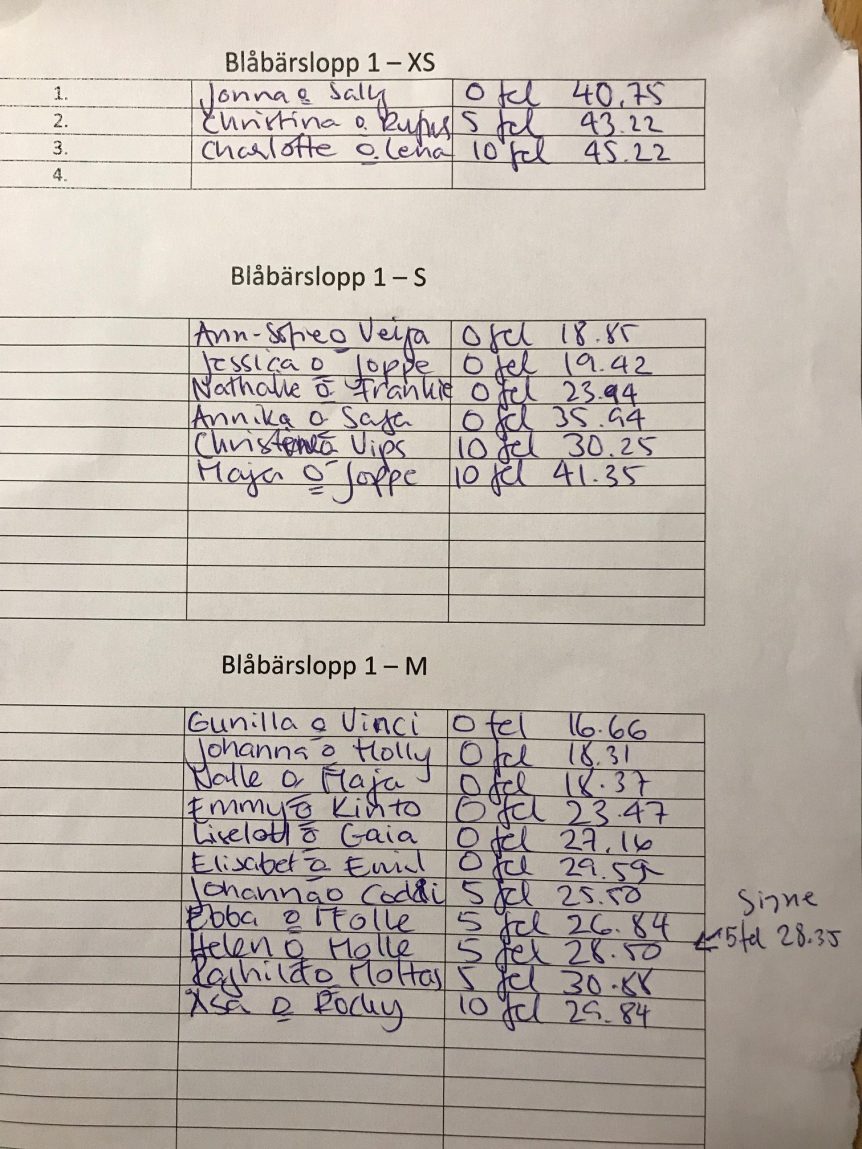 Blåbärslopp 1 – XS
1. Jonna o Sally 0 fel 40.75
2. Christina o Rufus 5 fel 43.22
3. Charlotte o Lena 10 fel 45.22
4.
Blåbärslopp 1 – S
Ann-Sofie o Veija 0 fel 18.85
Jessica o Joppe 0 fel 19.42
Nathalie o Frankie 0 fel 23.94
Annika o Saga 0 fel 35.94
o Vips 10 fel 30.25
Maja o Joppe 10 fel 41.35
Blåbärslopp 1 – M
Gunilla o Vinci 0 fel 16.66
Johanna o Holly 0 fel 18.31
Nalle o Maja 0 fel 18.37
Emmy o Kinto 0 fel 23.47
Liselott o Gaia 0 fel 27.16
Elisabet o Emil 0 fel 29.59
Johanna o 5 fel 25.50
Ebba o Molle 5 fel 26.84
Signe
Helen o Molle 5 fel 28.50 ← 5 fel 28.35
Raghild o 5 fel 30.88
Åsa o Rocky 10 fel 29.84